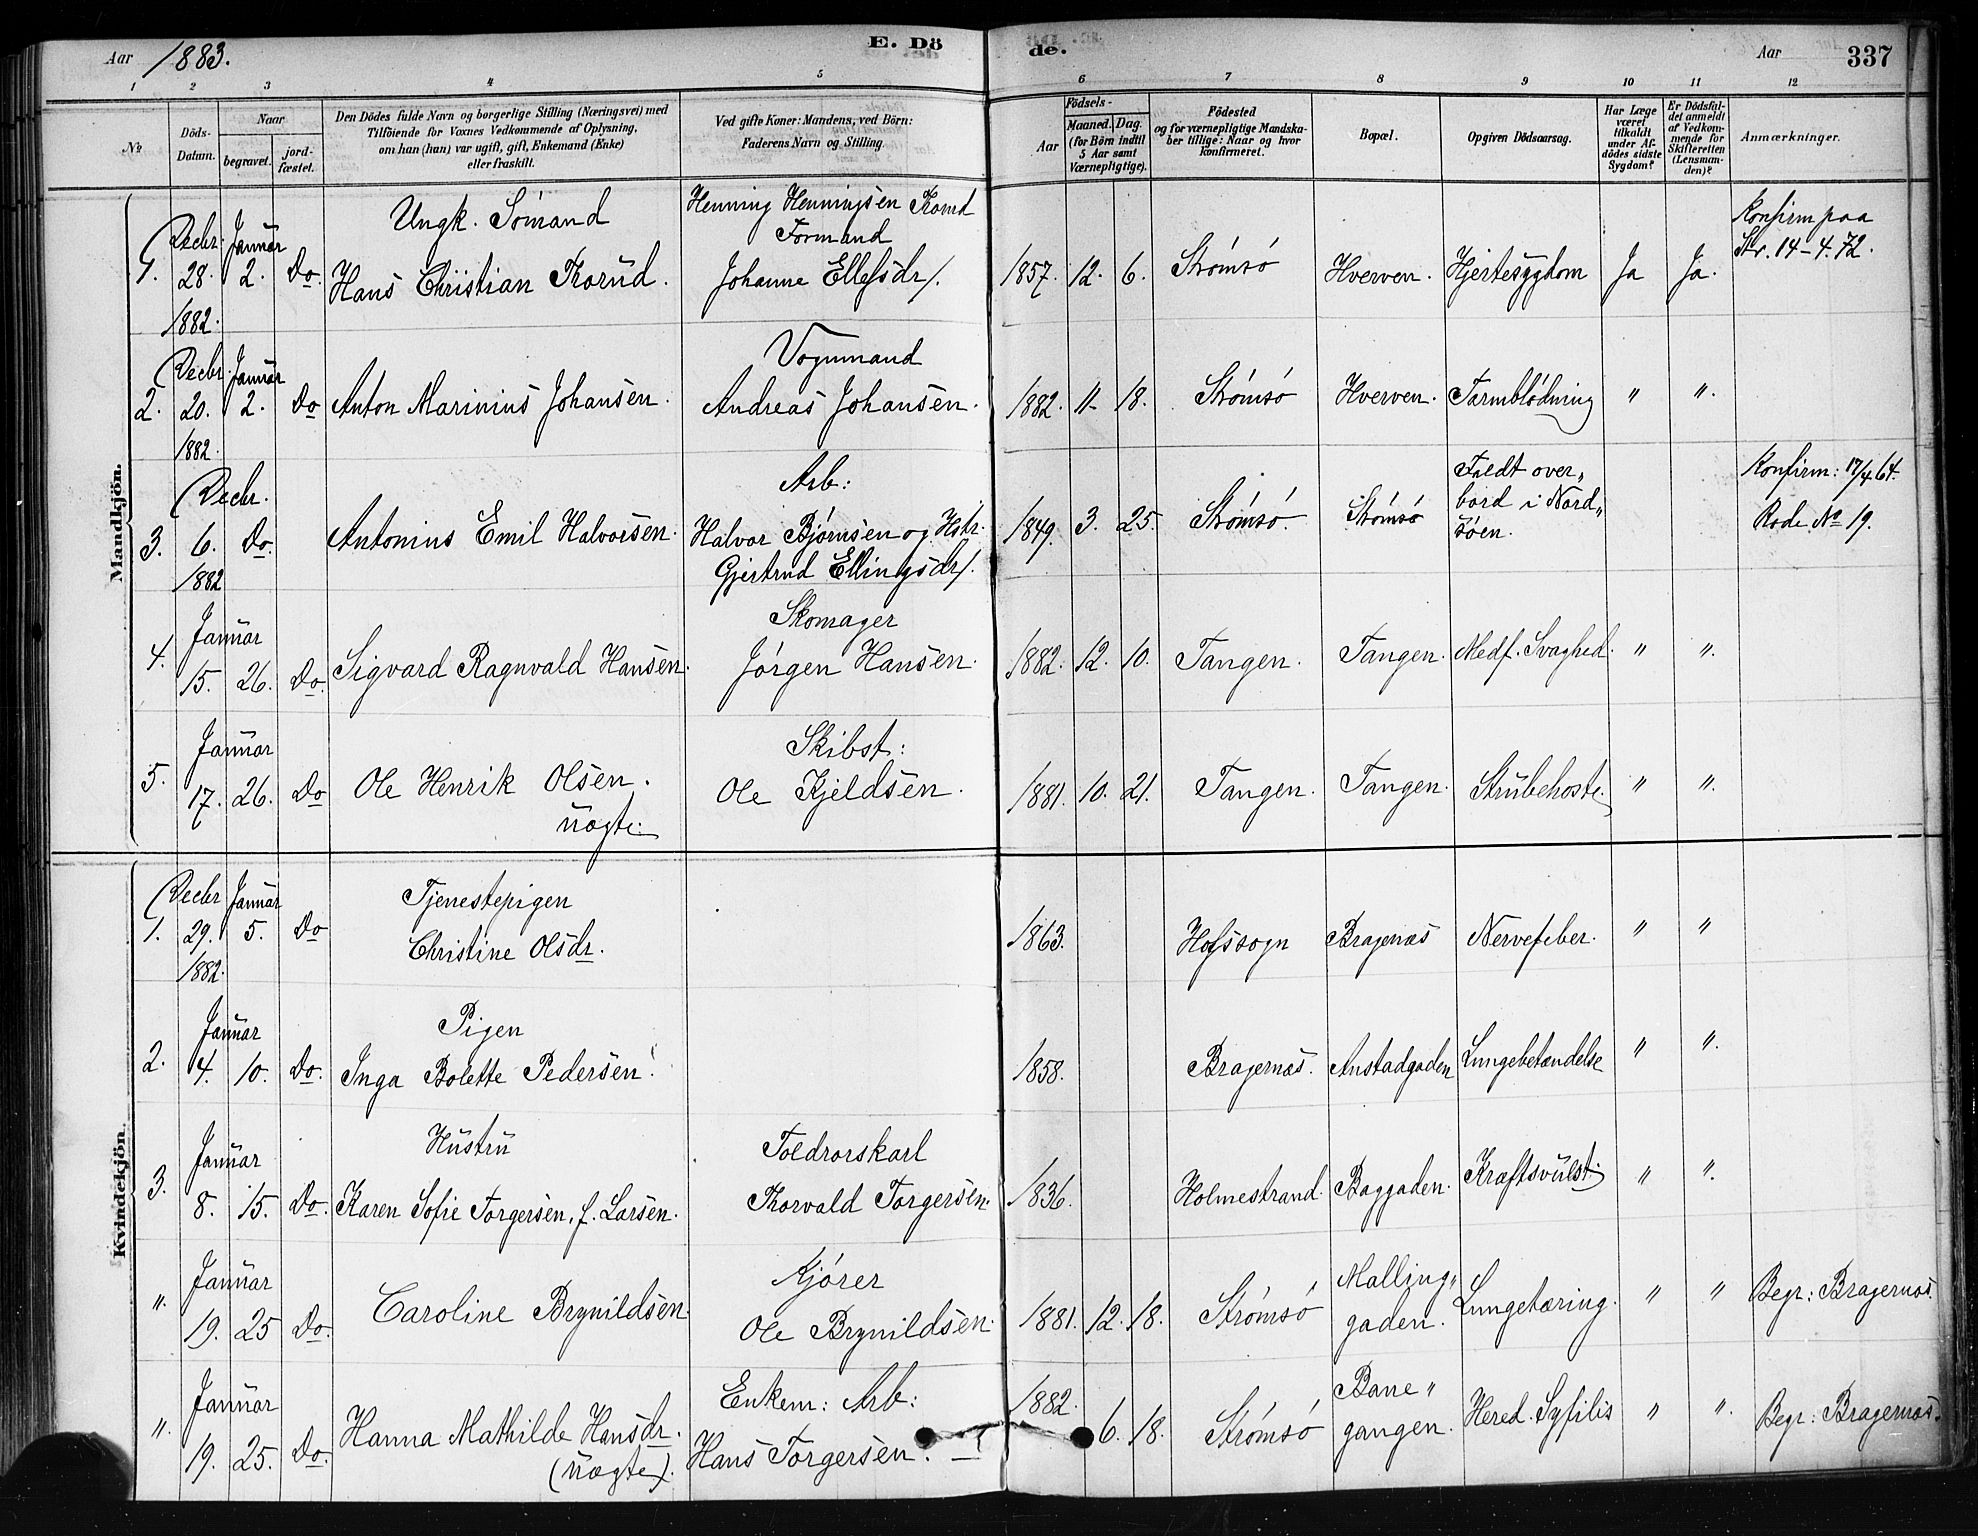 Aar 1883.
E. Döde.
Aar
337
1 2 3 4 5 6 7 8 9 10 11 12
№
Döds-Datum.
Naar
begravet.
jord-fæstet.
Den Dödes fulde Navn og borgerlige Stilling (Næringsvei) med
Tilföiende for Voxnes Vedkommende af Oplysning,
om han (hun) var ugift, gift, Enkemand (Enke)
eller fraskilt.
Ved gifte Koner: Mandens, ved Börn:
Faderens Navn og Stilling.
Födsels-
Aar
Maaned. Dag.
(for Börn indtil
5 Aar samt
Værnepligtige).
Födested
og for værnepligtige Mandska-
ber tillige: Naar og hvor
konfirmeret.
Bopæl.
Opgiven Dödsaarsag.
Har Læge
været
tilkaldt
under Af-
dödes sidste
Sygdom?
Er Dödsfal-
det anmeldt
af Vedkom-
mende for
Skifteretten
(Lensman-
den)?
Anmærkninger.
Mandkjön.
1. Decbr. 28. 1882. Januar 2. Do.
Ungk. Sömand
Hans Christian Thorud.
Henning Henningsen Thorud
Formand
Johanne Ellefsdr/.
1857. 12. 6. Strömsö Hverven. Hjertesygdom Ja Ja.
Konfirm paa
Str. 14-4.72.
2. Decbr. 20. 1882. Januar 2. Do
Anton Marinius Johansen.
Vognmand
Andreas Johansen.
1882. 11. 18. Strömsö Hverven. Tarmblödning " ".
3. Decbr. 6. 1882 Do.
Antonius Emil Halvorsen.
Arb:
Halvor Bjørnsen og Hstr.
Gjertrud Ellingsdr/.
1849. 3. 25. Strömsö. Strömsö
Faldt over„
bord i Nord„
söen.
Konfirm: 17/4 64.
Rode № 19.
4. Januar 15. 26. Do.
Sigvard Ragnvald Hansen.
Skomager
Jørgen Hansen.
1882. 12. 10. Tangen. Tangen. Medf. Svaghed. " ".
5. Januar 17. 26. Do
Ole Henrik Olsen.
uægte.
Skibst:
Ole Kjeldsen.
1881. 10. 21. Tangen. Tangen. Strubehoste. " ".
Kvindekjön.
1. Decbr 29. 1882. Januar 5. Do
Tjenestepigen
Christine Olsdr.
1863. Hofssogn Bragenæs Nervefeber. " "
2. Januar 4. 10. Do.
Pigen
Inga Bolette Pedersen.
1858. Bragernæs. Anstadgaden Lungebetændelse " ".
3. Januar 8. 15. Do.
Hustru
Karen Sofie Torgersen, f. Larsen.
Toldrorskarl
Thorvald Torgersen.
1836. Holmestrand. Baggaden. Kræftsvulst. " ".
". Januar 19. 25 Do.
Caroline Brynildsen.
Kjører
Ole Brynildsen.
1881. 12. 18. Strömsö Malling„
gaden. Lungetæring. " "
Begr: Bragernæs.
". Januar 19. 25. Do.
Hanna Mathilde Hansdr.
(uægte).
Enkem: Arb:
Hans Torgersen.
1882. 6. 18. Strömsö Bane„
gangen. Hered. Syfilis " ".
Begr: Bragernæs.